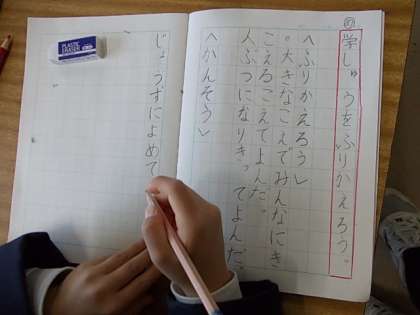 め
学しゅうをふりかえろう。
<ふりかえろう>
。大きなこえでみんなにき
こえるこえでよんだ。
人ぶつになりきってよんだ。
<かんそう>
じょうずによめて
PLASTIC
ERASER